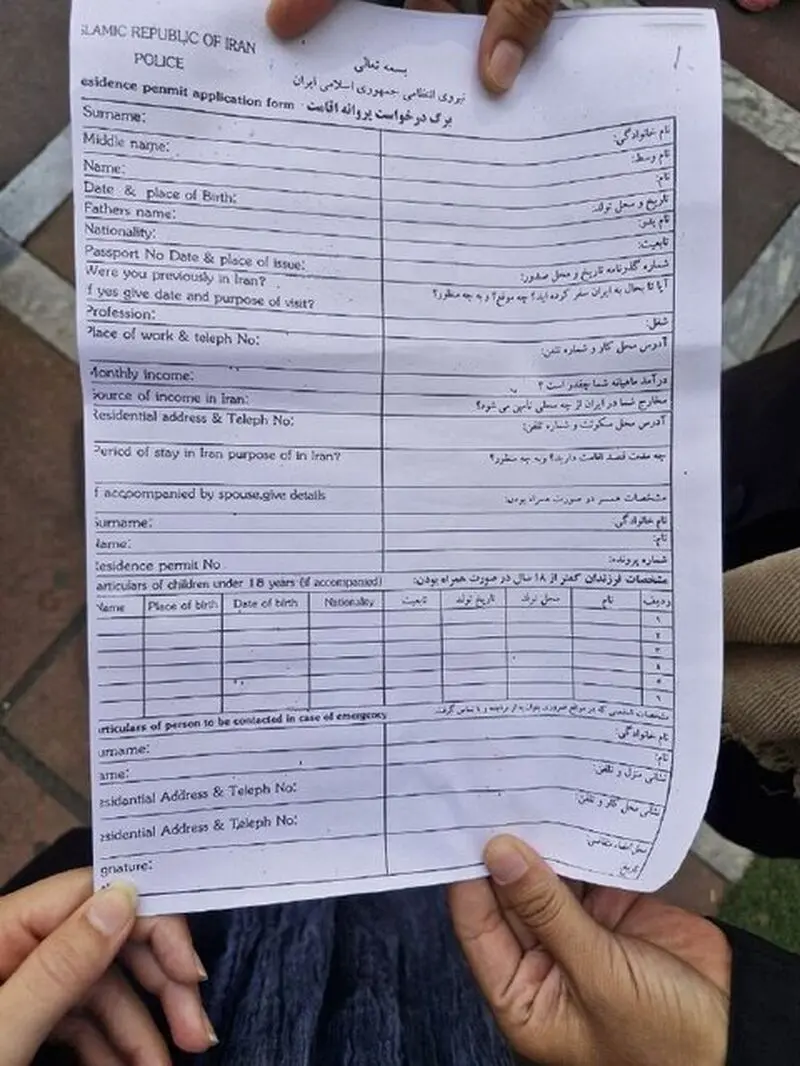 ISLAMIC REPUBLIC OF IRAN
POLICE
بسمه تعالی
نیروی انتظامی جمهوری اسلامی ایران
esidence penmit application form برگ درخواست پروانه اقامت
Surname: نام خانوادگی:
Middle name: نام وسط:
Name: نام:
Date & place of Birth: تاریخ و محل تولد:
Fathers name: نام پدر:
Nationality: تابعیت:
Passport No Date & place of issue: شماره گذرنامه تاریخ و محل صدور:
Were you previously in Iran? آیا تا بحال به ایران سفر کرده اید؟ چه موقع؟ و به چه منظور؟
f yes give date and purpose of visit?
Profession: شغل:
Place of work & teleph No: آدرس محل کار و شماره تلفن:
Monthly income: درآمد ماهیانه شما چقدر است ؟
Source of income in Iran: مخارج شما در ایران از چه محلی تامین می شود؟
Residential address & Teleph No: آدرس محل سکونت و شماره تلفن:
Period of stay in Iran purpose of in Iran? چه مدت قصد اقامت دارید؟ وبه چه منظور؟
f accpompanied by spouse,give details مشخصات همسر در صورت همراه بودن:
Surname: نام خانوادگی:
Name: نام:
Residence permit No شماره پرونده:
articulars of children under 18 years (if accompanied) مشخصات فرزندان کمتر از ۱۸ سال در صورت همراه بودن:
Name Place of birth Date of birth Nationality تابعیت تاریخ تولد محل تولد نام ردیف
۱
۲
۳
۴
۵
۶
articulars of person to be contacted in case of emergency مشخصات شخصی که در مواقع ضروری بتوان با تماس گرفت.
urname: نام خانوادگی:
ame: نام:
esidential Address & Teleph No: نشانی منزل و تلفن:
esidential Address & Teleph No: نشانی محل کار و تلفن:
gnature: محل امضاء متقاضی:
تاریخ: